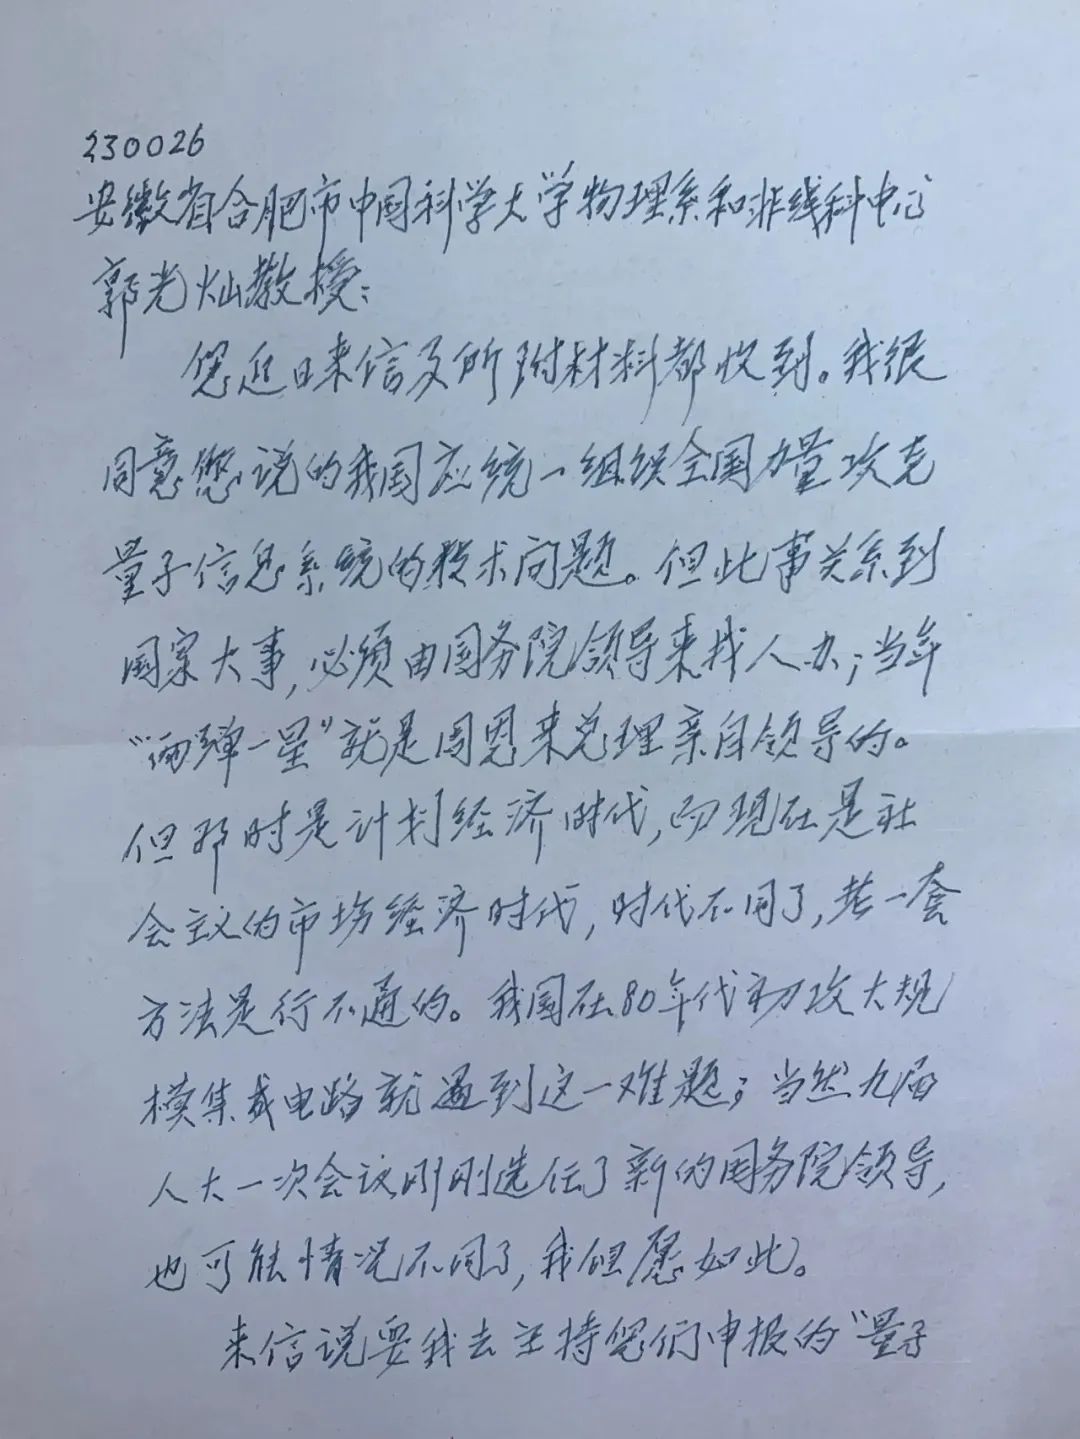 230026
安徽省合肥市中国科学大学物理系和非线科中心
郭光灿教授：
您近日来信及所附材料都收到。我很
同意您说的我国应统一组织全国力量攻克
量子信息系统的技术问题。但此事关系到
国家大事，必须由国务院领导来找人办；当年
“两弹一星”就是周恩来总理亲自领导的。
但那时是计划经济时代，而现在是社
会主义的市场经济时代，时代不同了，老一套
方法是行不通的。我国在80年代初攻大规
模集成电路就遇到这一难题；当然九届
人大一次会议刚刚选任了新的国务院领导，
也可能情况不同了，我但愿如此。
来信说要我去主持您们申报的“量子